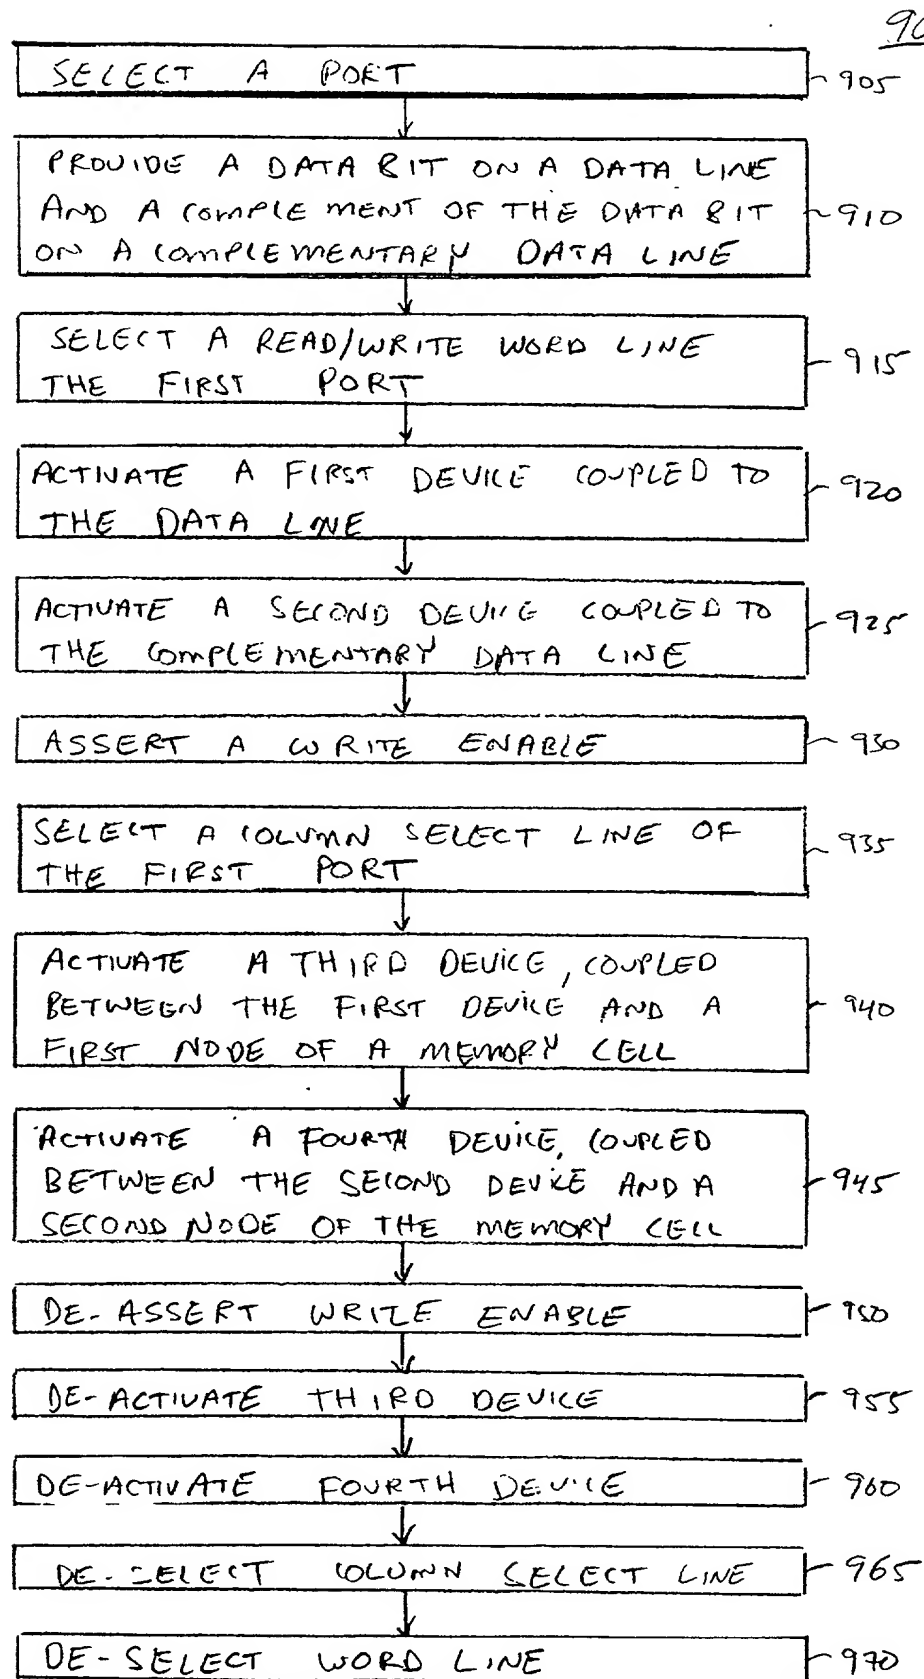 90
SELECT A PORT
905
PROVIDE A DATA BIT ON A DATA LINE
AND A COMPLEMENT OF THE DATA BIT
ON A COMPLEMENTARY DATA LINE
910
SELECT A READ/WRITE WORD LINE
THE FIRST PORT
915
ACTIVATE A FIRST DEVICE COUPLED TO
THE DATA LINE
920
ACTIVATE A SECOND DEVICE COUPLED TO
THE COMPLEMENTARY DATA LINE
925
ASSERT A WRITE ENABLE
930
SELECT A COLUMN SELECT LINE OF
THE FIRST PORT
935
ACTIVATE A THIRD DEVICE, COUPLED
BETWEEN THE FIRST DEVICE AND A
FIRST NODE OF A MEMORY CELL
940
ACTIVATE A FOURTH DEVICE, COUPLED
BETWEEN THE SECOND DEVICE AND A
SECOND NODE OF THE MEMORY CELL
945
DE-ASSERT WRITE ENABLE
950
DE-ACTIVATE THIRD DEVICE
955
DE-ACTIVATE FOURTH DEVICE
960
DE-SELECT COLUMN SELECT LINE
965
DE-SELECT WORD LINE
970